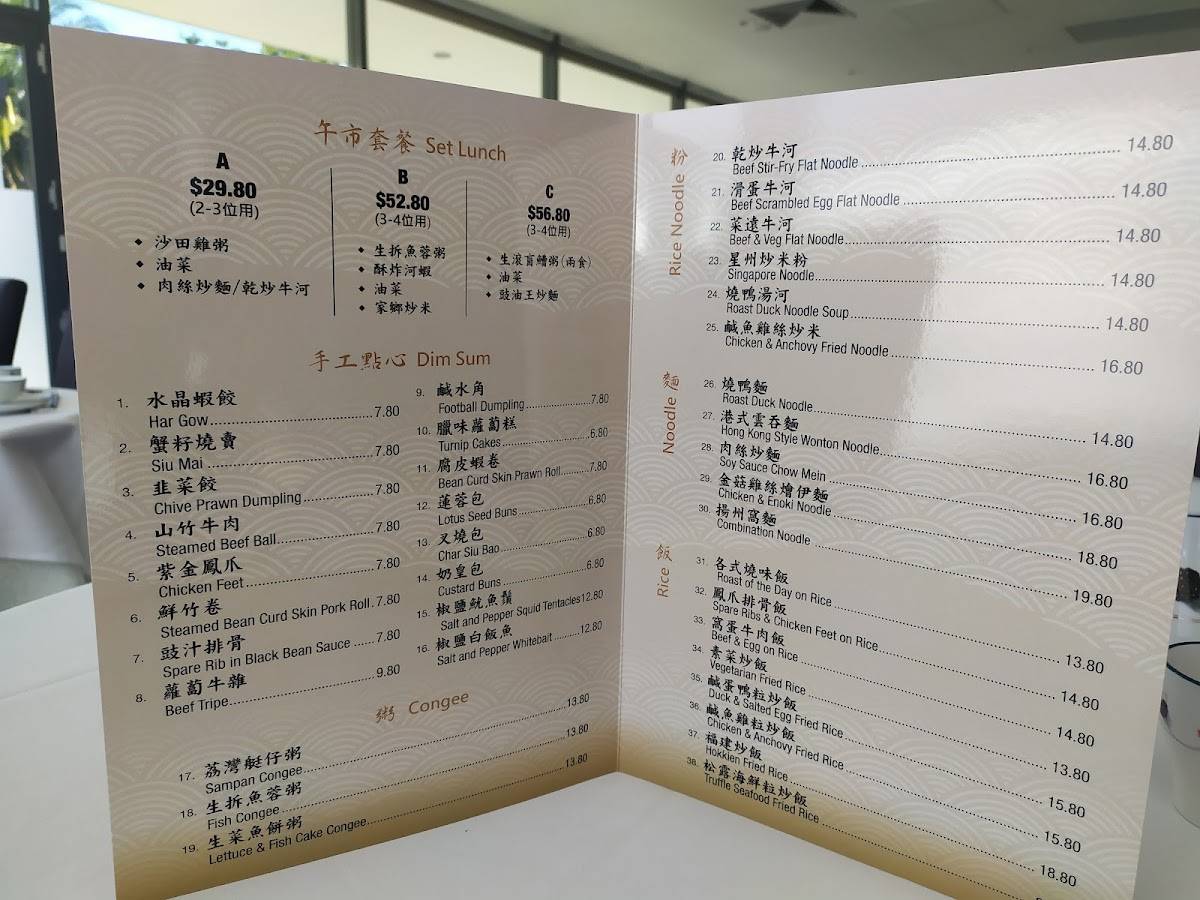 午市套餐 Set Lunch
A
$29.80
(2-3位用)
◆ 沙田雞粥
◆ 油菜
◆ 肉絲炒麵/乾炒牛河
B
$52.80
(3-4位用)
◆ 生拆魚蓉粥
◆ 酥炸河蝦
◆ 油菜
◆ 家鄉炒米
C
$56.80
(3-4位用)
◆ 生滾盲鰽粥(兩食)
◆ 油菜
◆ 豉油王炒麵
手工點心 Dim Sum
1. 水晶蝦餃
Har Gow 7.80
2. 蟹籽燒賣
Siu Mai 7.80
3. 韭菜餃
Chive Prawn Dumpling 7.80
4. 山竹牛肉
Steamed Beef Ball 7.80
5. 紫金鳳爪
Chicken Feet 7.80
6. 鮮竹卷
Steamed Bean Curd Skin Pork Roll 7.80
7. 豉汁排骨
Spare Rib in Black Bean Sauce 7.80
8. 蘿蔔牛雜
Beef Tripe 9.80
9. 鹹水角
Football Dumpling 7.80
10. 臘味蘿蔔糕
Turnip Cakes 6.80
11. 腐皮蝦卷
Bean Curd Skin Prawn Roll 7.80
12. 蓮蓉包
Lotus Seed Buns 6.80
13. 叉燒包
Char Siu Bao 6.80
14. 奶皇包
Custard Buns 6.80
15. 椒鹽魷魚鬚
Salt and Pepper Squid Tentacles 12.80
16. 椒鹽白飯魚
Salt and Pepper Whitebait 12.80
粥 Congee
17. 荔灣艇仔粥
Sampan Congee 13.80
18. 生拆魚蓉粥
Fish Congee 13.80
19. 生菜魚餅粥
Lettuce & Fish Cake Congee 13.80
Rice Noodle 粉
20. 乾炒牛河
Beef Stir-Fry Flat Noodle 14.80
21. 滑蛋牛河
Beef Scrambled Egg Flat Noodle 14.80
22. 菜遠牛河
Beef & Veg Flat Noodle 14.80
23. 星州炒米粉
Singapore Noodle 14.80
24. 燒鴨湯河
Roast Duck Noodle Soup 14.80
25. 鹹魚雞絲炒米
Chicken & Anchovy Fried Noodle 16.80
Noodle 麵
26. 燒鴨麵
Roast Duck Noodle 14.80
27. 港式雲吞麵
Hong Kong Style Wonton Noodle 16.80
28. 肉絲炒麵
Soy Sauce Chow Mein 16.80
29. 金菇雞絲燴伊麵
Chicken & Enoki Noodle 18.80
30. 揚州窩麵
Combination Noodle 19.80
Rice 飯
31. 各式燒味飯
Roast of the Day on Rice 13.80
32. 鳳爪排骨飯
Spare Ribs & Chicken Feet on Rice 14.80
33. 窩蛋牛肉飯
Beef & Egg on Rice 14.80
34. 素菜炒飯
Vegetarian Fried Rice 13.80
35. 鹹蛋鴨粒炒飯
Duck & Salted Egg Fried Rice 15.80
36. 鹹魚雞粒炒飯
Chicken & Anchovy Fried Rice 15.80
37. 福建炒飯
Hokkien Fried Rice 18.80
38. 松露海鮮粒炒飯
Truffle Seafood Fried Rice